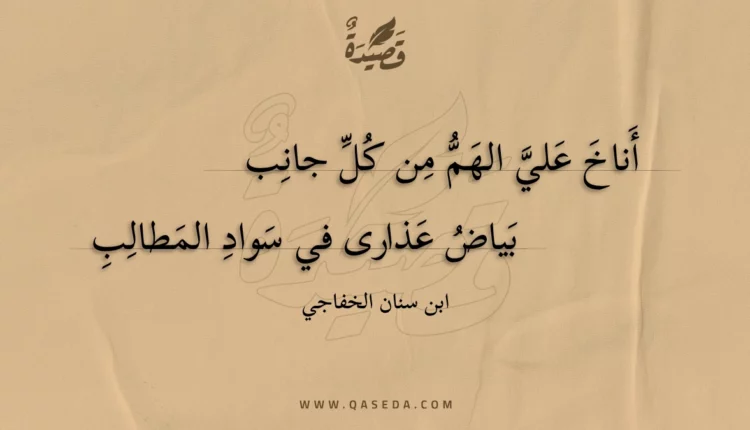 قَصِيْدَةٌ
أَناخَ عَليَّ الهَمُّ مِن كُلِّ جانِب
بَياضُ عَذارى في سَوادِ المَطالِبِ
ابن سنان الخفاجي
WWW.QASEDA.COM